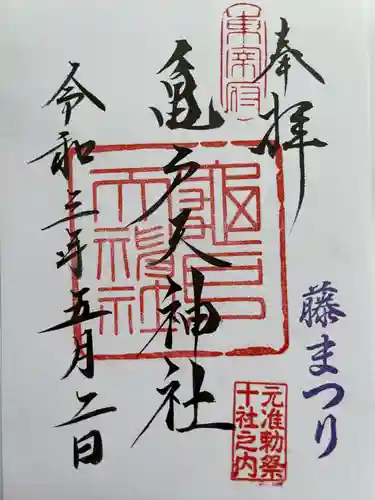 奉拝
藤まつり
元准勅祭
十社之内
東宰府
亀戸天神社
亀戸
天神社
令和三年五月二日